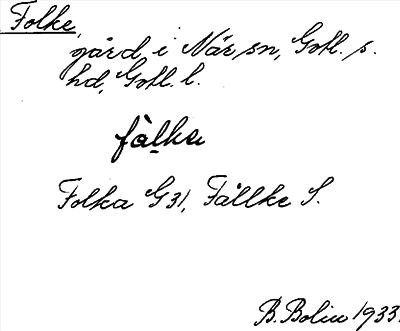 Folke,
gård, i När sn, Gotl. s.
hd, Gotl. l.
fàlka
Folka G31, Fållke S.
B. Bolin 1933.